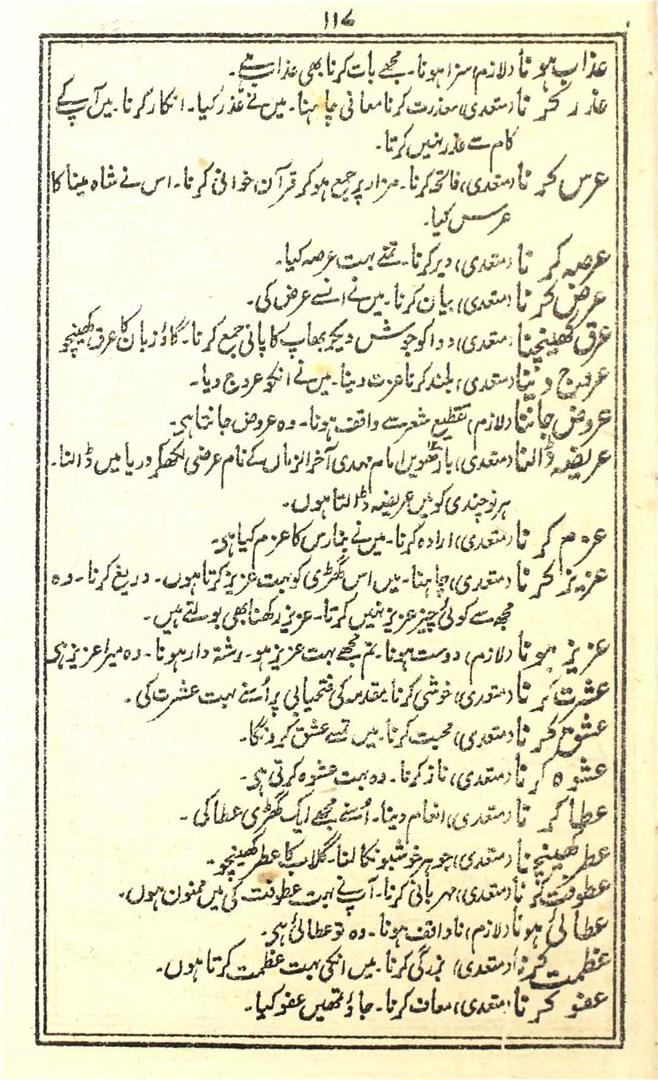 ۱۱۷
عذاب ہونا (لازم) سزا ہونا۔ مجھے بات کرنا بھی عذاب ہے۔
عذر کرنا (متعدی) معذرت کرنا معافی چاہنا۔ میں نے عذر کیا۔ انکار کرنا۔ میں آپ کے
کام سے عذر نہیں کرتا۔
عرس کرنا (متعدی) فاتحہ کرنا۔ مزار پر جمع ہو کر قرآن خوانی کرنا۔ اس نے شاہ مینا کا
عرس کیا۔
عرصہ کرنا (متعدی) دیر کرنا۔ تمنے بہت عرصہ کیا۔
عرض کرنا (متعدی) بیان کرنا۔ میں نے انسے عرض کی۔
عرق کھینچنا (متعدی) دوا کو جوش دیکر بھاپ کا پانی جمع کرنا۔ گاؤ زبان کا عرق کھینچو
عروج دینا (متعدی) بلند کرنا عزت دینا۔ میں نے انکو عروج دیا۔
عروض جاننا (لازم) تقطیع شعر سے واقف ہونا۔ وہ عروض جانتا ہی۔
عریضہ ڈالنا (متعدی) بارھویں امام مہدی آخر الزماں کے نام عرضی لکھکر دریا میں ڈالنا۔
ہر نوچندی کو میں عریضہ ڈالتا ہوں۔
عزم کرنا (متعدی) ارادہ کرنا۔ میں نے بنارس کا عزم کیا ہی۔
عزیز کرنا (متعدی) چاہنا۔ میں اس گھڑی کو بہت عزیز کرتا ہوں۔ دریغ کرنا۔ وہ
مجھ سے کوئی چیز عزیز نہیں کرتا۔ عزیز رکھنا بھی بولتے ہیں۔
عزیز ہونا (لازم) دوست ہونا۔ تم مجھے بہت عزیز ہو۔ رشتہ دار ہونا۔ وہ میرا عزیز ہی
عشرت کرنا (متعدی) خوشی کرنا۔ مقدمہ کی فتحیابی پر اسنے بہت عشرت کی۔
عشق کرنا (متعدی) محبت کرنا۔ میں تمسے عشق کرونگا۔
عشوہ کرنا (متعدی) ناز کرنا۔ وہ بہت عشوہ کرتی ہی۔
عطا کرنا (متعدی) انعام دینا۔ اسنے مجھے ایک گھڑی عطا کی۔
عطر کھینچنا (متعدی) جوہر خوشبو نکالنا۔ گلاب کا عطر کھینچو۔
عطوفت کرنا (متعدی) مہربانی کرنا۔ آپ نے بہت عطوفت کی میں ممنون ہوں۔
عطائی ہونا (لازم) ناواقف ہونا۔ وہ تو عطائی ہی۔
عظمت کرنا (متعدی) بزرگی کرنا۔ میں انکی بہت عظمت کرتا ہوں۔
عفو کرنا (متعدی) معاف کرنا۔ جاؤ تمھیں عفو کیا۔